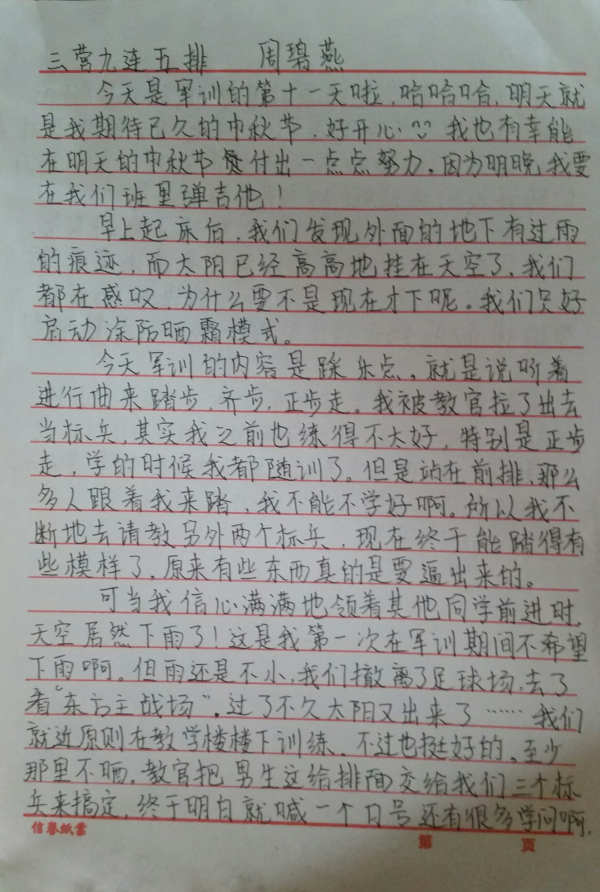 三营九连五排  周碧燕
今天是军训的第十一天啦，哈哈哈，明天就
是我期待已久的中秋节，好开心 我也有幸能
在明天的中秋节付出一点点努力，因为明晚我要
在我们班里弹吉他！
早上起床后，我们发现外面的地下有过雨
的痕迹，而太阳已经高高地挂在天空了，我们
都在感叹，为什么要不是现在才下呢。我们只好
启动涂防晒霜模式。
今天军训的内容是踩乐点，就是说听着
进行曲来踏步，齐步，正步走。我被教官拉了出去
当标兵，其实我之前也练得不太好，特别是正步
走，学的时候我都随训了。但是站在前排，那么
多人跟着我来踏，我不能不学好啊。所以我不
断地去请教另外两个标兵，现在终于能踏得有
些模样了，原来有些东西真的是要逼出来的。
可当我信心满满地领着其他同学前进时，
天空居然下雨了！这是我第一次在军训期间不希望
下雨啊。但雨还是不小，我们撤离了足球场，去了
看“东方主战场”，过了不久太阳又出来了……我们
就近原则在教学楼楼下训练，不过也挺好的，至少
那里不晒，教官把男生这给排面交给我们三个标
兵来搞定，终于明白就喊一个口号还有很多学问啊，
信誉纸业
第 页